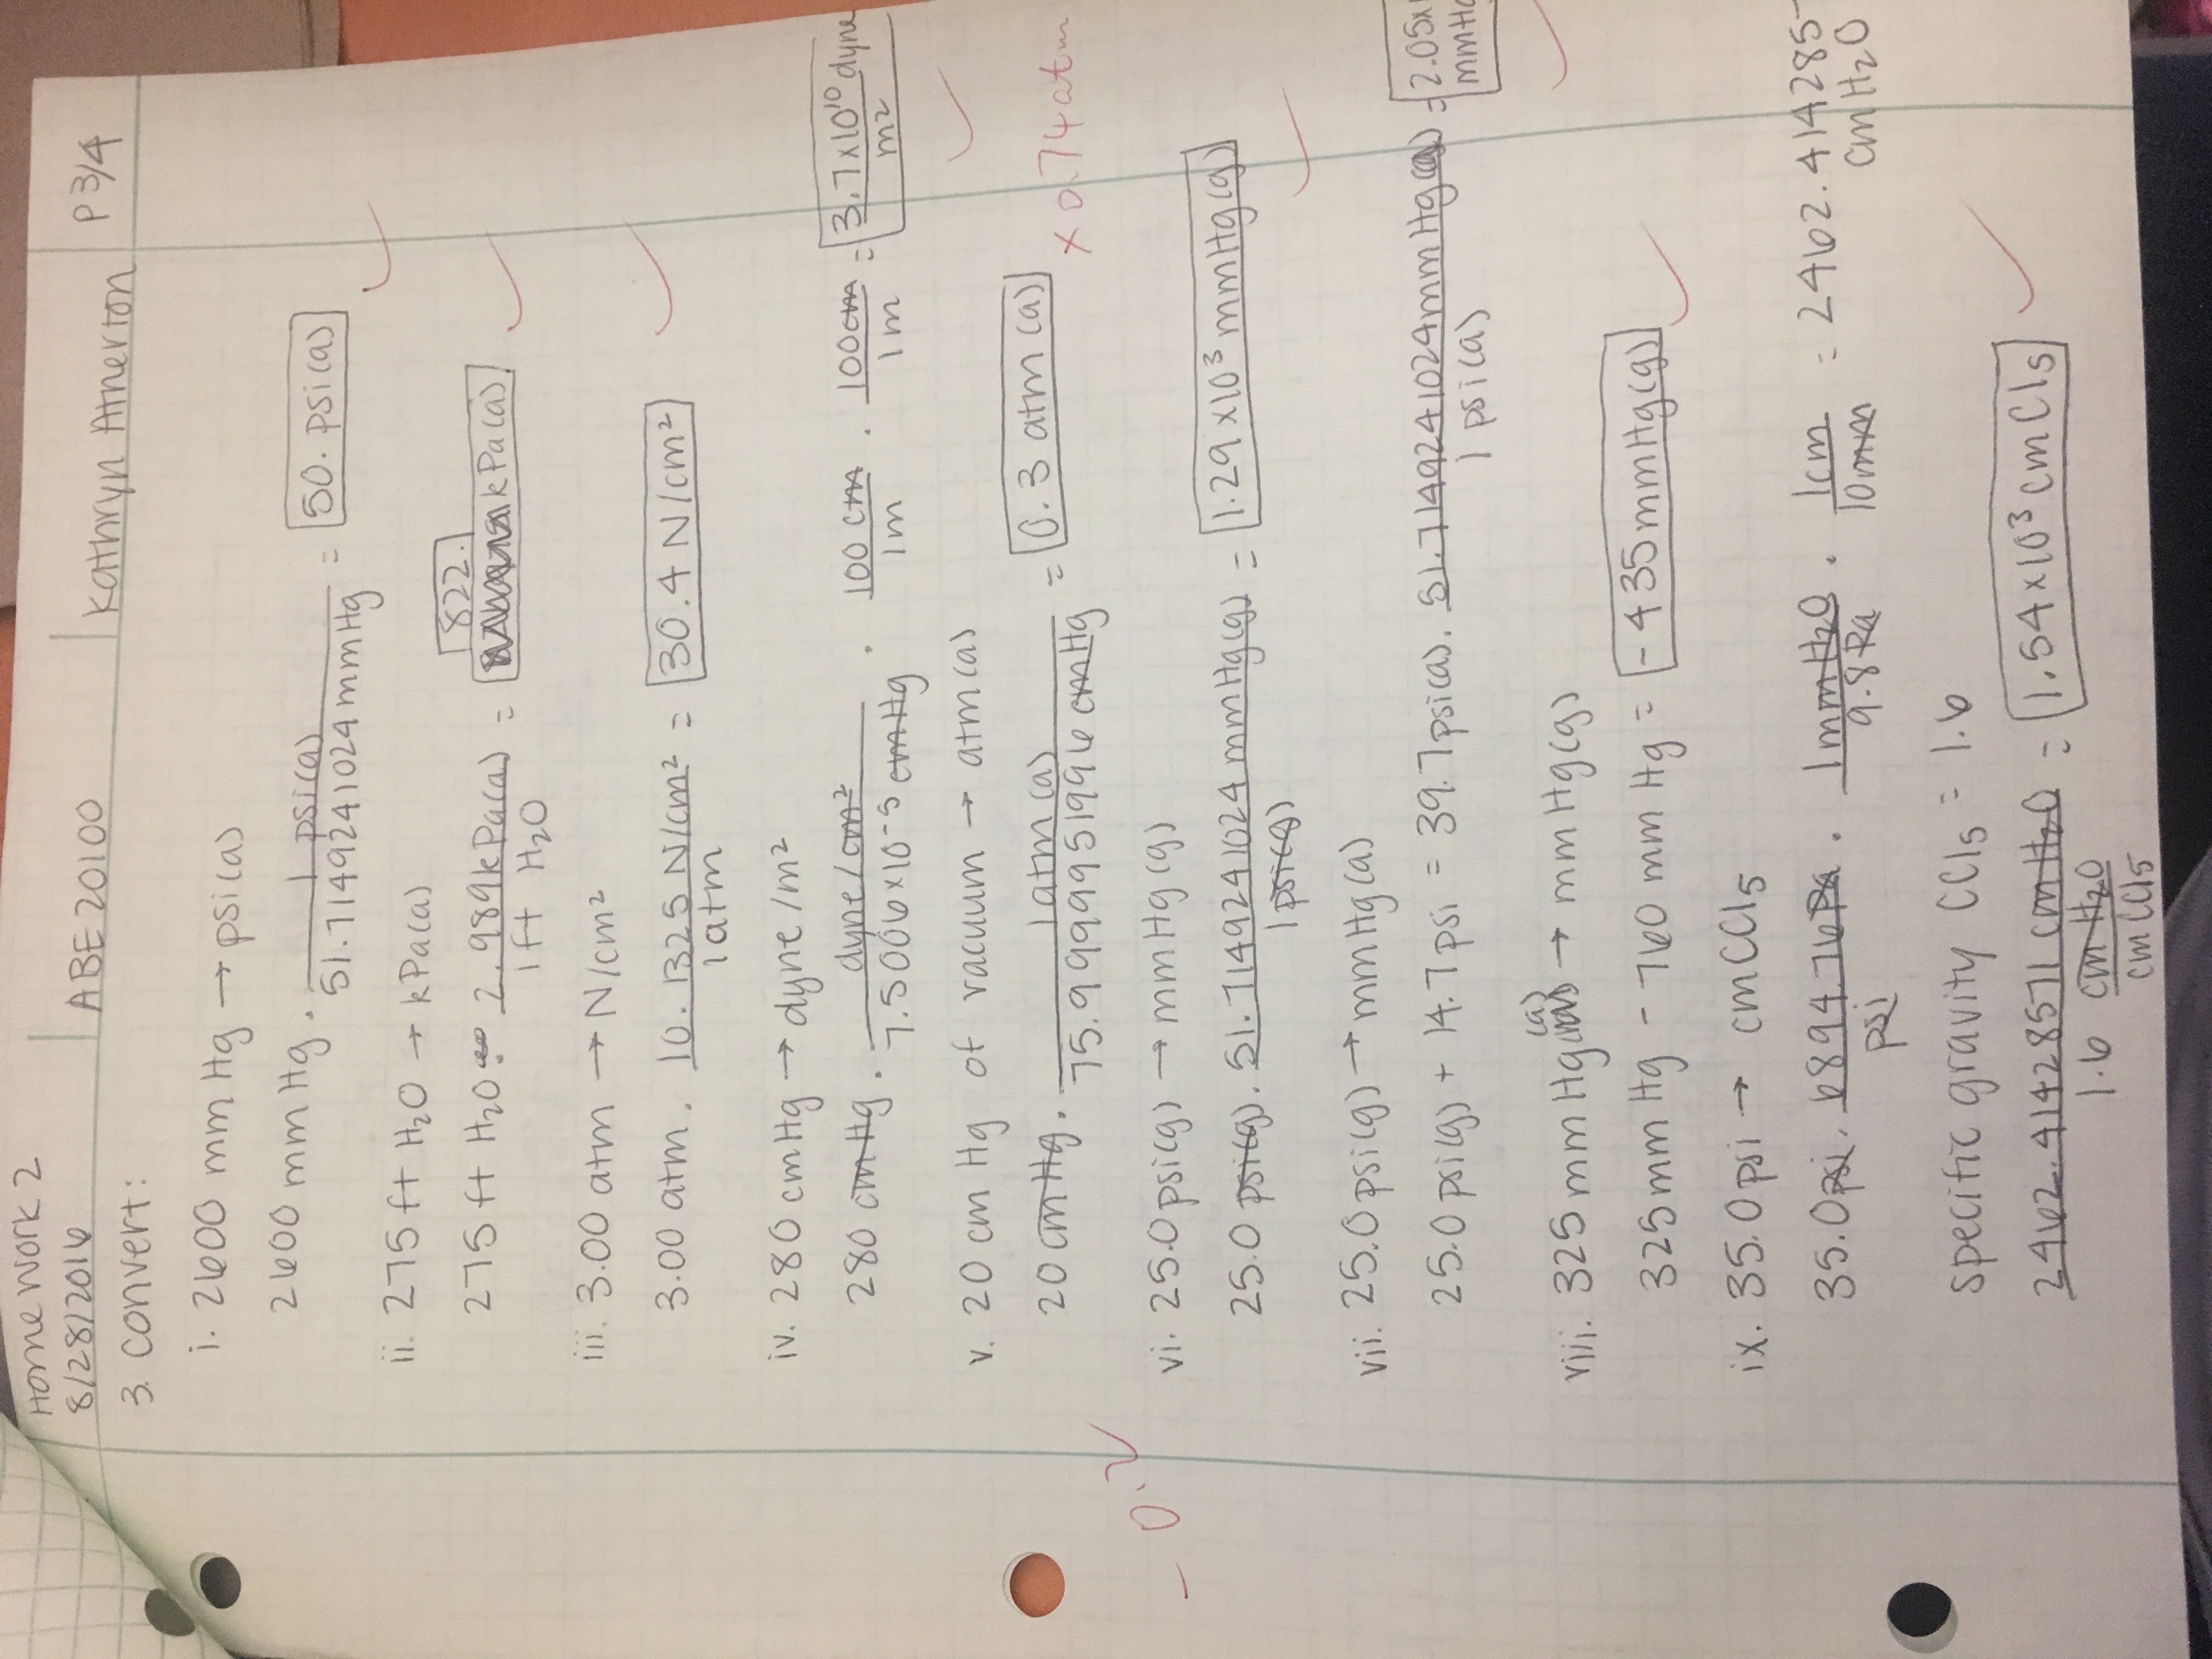 Homework 2
8/28/2016
ABE 20100
Kathryn Atherton
P 3/4
3. Convert:
i. 2600 mm Hg → psi(a)
2600 mm Hg · 1 psi(a) / 51.7149241024 mmHg = 50. psi(a)
ii. 275 ft H₂O → kPa(a)
275 ft H₂O · 2.989 kPa(a) / 1 ft H₂O = 822. kPa(a)
iii. 3.00 atm → N/cm²
3.00 atm · 10.1325 N/cm² / 1 atm = 30.4 N/cm²
iv. 280 cmHg → dyne/m²
280 cmHg · dyne/cm² / 7.5006×10⁻⁵ cmHg · 100 cm / 1m · 100cm / 1m = 3.7×10¹⁰ dyne / m²
v. 20 cm Hg of vacuum → atm(a)
20 cmHg · 1 atm(a) / 75.9999951996 cmHg = 0.3 atm(a)
× 0.74 atm
- 0.2
vi. 25.0 psi(g) → mmHg(g)
25.0 psi(g) · 51.7149241024 mmHg(g) / 1 psi(g) = 1.29×10³ mmHg(g)
vii. 25.0 psi(g) → mmHg(a)
25.0 psi(g) + 14.7 psi = 39.7 psi(a) · 51.7149241024 mmHg(a) / 1 psi(a) = 2.05×
mmHg
viii. 325 mmHg(a) → mmHg(g)
325 mm Hg - 760 mm Hg = -435 mmHg(g)
ix. 35.0 psi → cmCCl₅
35.0 psi · 6894.76 Pa / psi · 1 mmH₂O / 9.8 Pa · 1cm / 10mm = 2462.414285
cmH₂O
specific gravity CCl₅ = 1.6
2462.41428571 cmH₂O / 1.6 cmH₂O / cmCCl₅ = 1.54×10³ cmCl₅